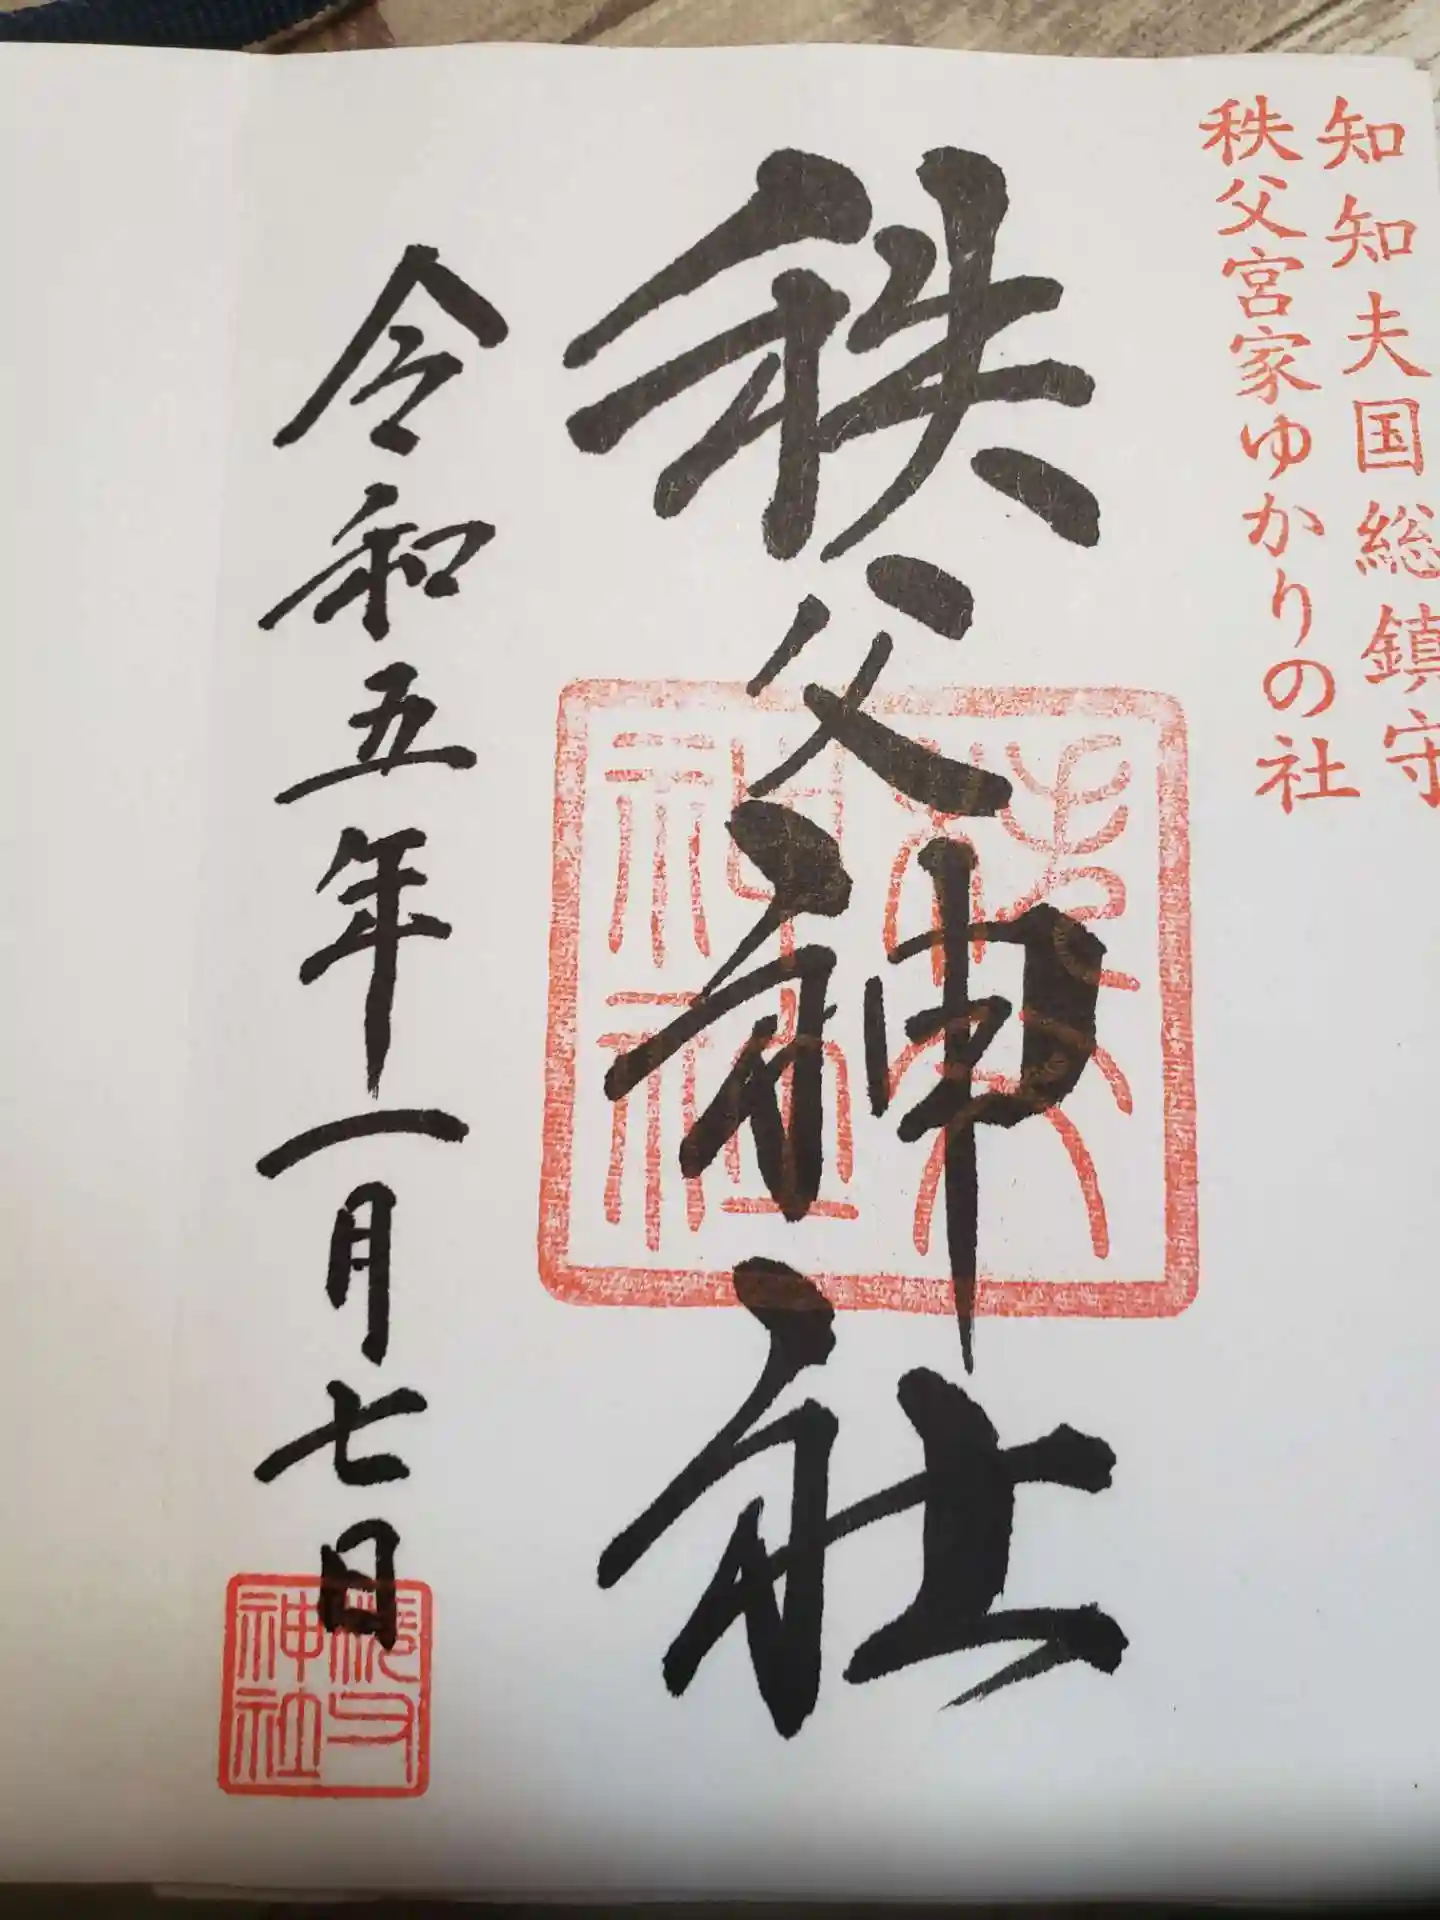 知知夫国総鎮守
秩父宮家ゆかりの社
秩父神社
秩父神社
令和五年一月七日
神社